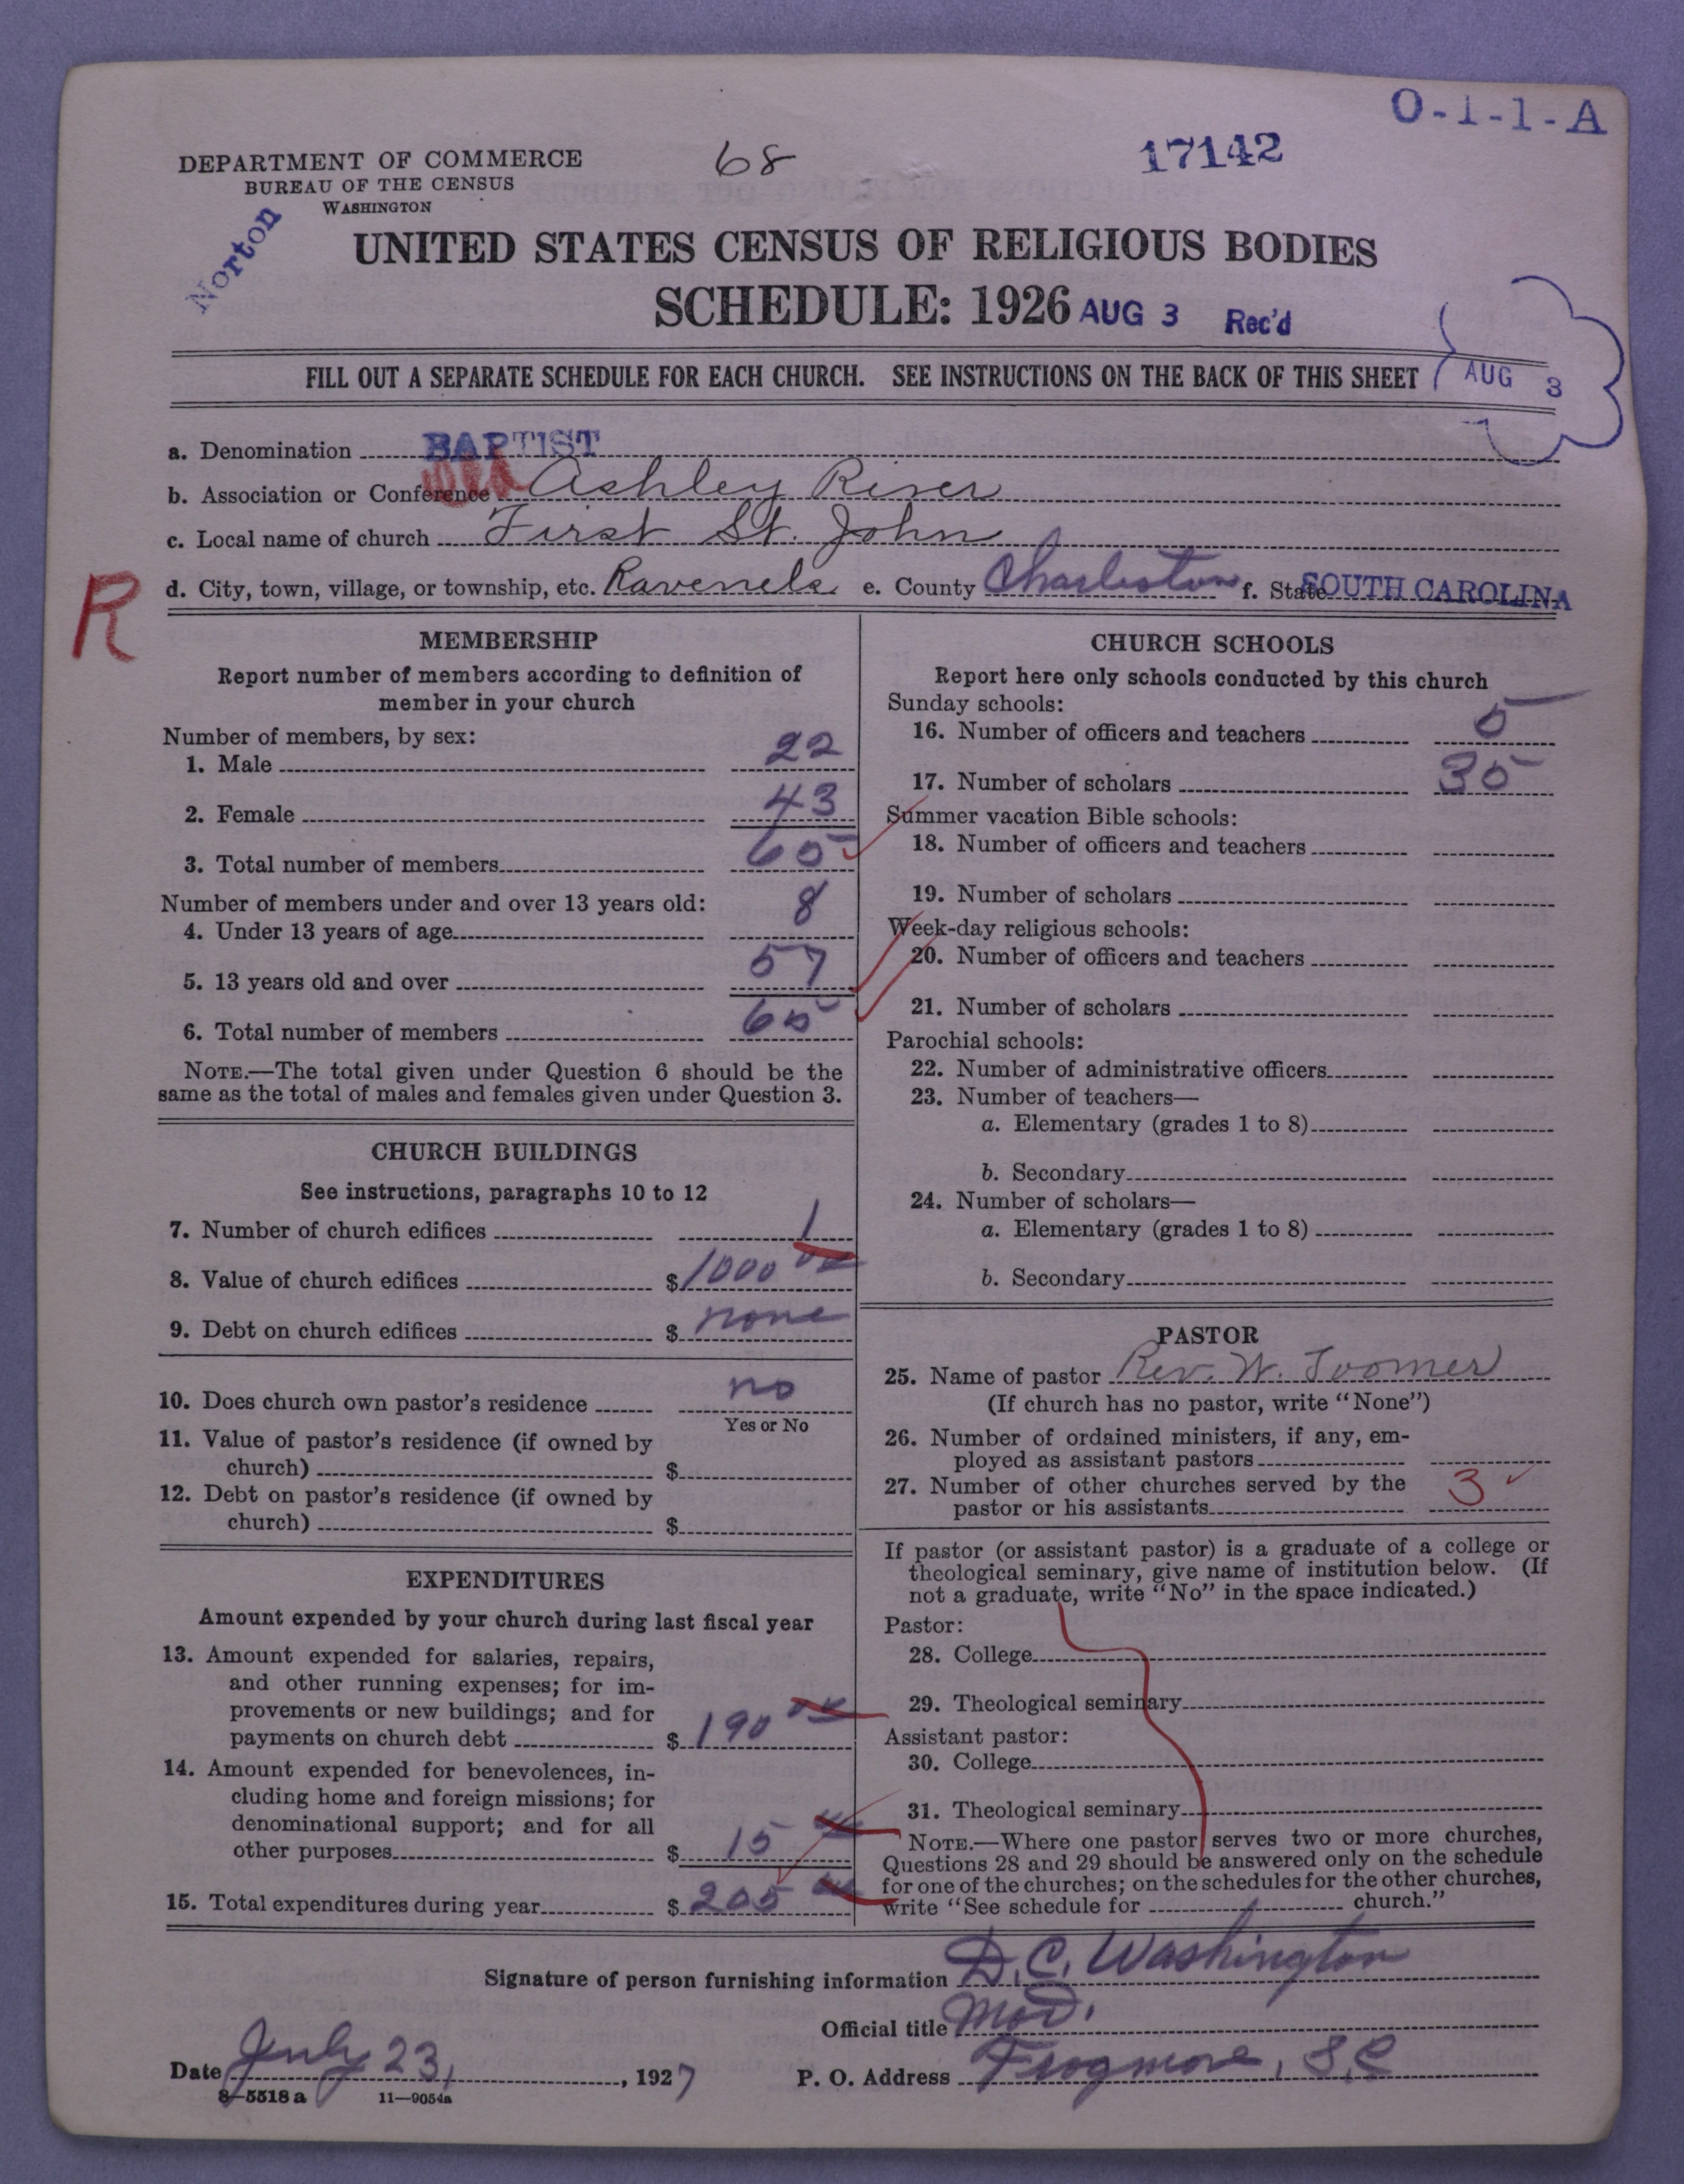 O-1-1-A
DEPARTMENT OF COMMERCE
BUREAU OF THE CENSUS
WASHINGTON
68
17142
Norton
UNITED STATES CENSUS OF RELIGIOUS BODIES
SCHEDULE: 1926 AUG 3 Rec'd
FILL OUT A SEPARATE SCHEDULE FOR EACH CHURCH. SEE INSTRUCTIONS ON THE BACK OF THIS SHEET
AUG 3
a. Denomination BAPTIST
b. Association or Conference Ashley River
c. Local name of church First St. John
R
d. City, town, village, or township, etc. Ravenels e. County Charleston f. State SOUTH CAROLINA
MEMBERSHIP
Report number of members according to definition of
member in your church
Number of members, by sex:
1. Male 22
2. Female 43
3. Total number of members 65
Number of members under and over 13 years old:
4. Under 13 years of age 8
5. 13 years old and over 57
6. Total number of members 65
NOTE.—The total given under Question 6 should be the
same as the total of males and females given under Question 3.
CHURCH BUILDINGS
See instructions, paragraphs 10 to 12
7. Number of church edifices 1
8. Value of church edifices $1000 00
9. Debt on church edifices $ none
10. Does church own pastor's residence no
Yes or No
11. Value of pastor's residence (if owned by
church) $
12. Debt on pastor's residence (if owned by
church) $
EXPENDITURES
Amount expended by your church during last fiscal year
13. Amount expended for salaries, repairs,
and other running expenses; for im-
provements or new buildings; and for
payments on church debt $ 190 00
14. Amount expended for benevolences, in-
cluding home and foreign missions; for
denominational support; and for all
other purposes $ 15 00
15. Total expenditures during year $ 205 00
CHURCH SCHOOLS
Report here only schools conducted by this church
Sunday schools:
16. Number of officers and teachers 5
17. Number of scholars 35
Summer vacation Bible schools:
18. Number of officers and teachers
19. Number of scholars
Week-day religious schools:
20. Number of officers and teachers
21. Number of scholars
Parochial schools:
22. Number of administrative officers
23. Number of teachers—
a. Elementary (grades 1 to 8)
b. Secondary
24. Number of scholars—
a. Elementary (grades 1 to 8)
b. Secondary
PASTOR
25. Name of pastor Rev. W. Toomer
(If church has no pastor, write "None")
26. Number of ordained ministers, if any, em-
ployed as assistant pastors
27. Number of other churches served by the
pastor or his assistants 3
If pastor (or assistant pastor) is a graduate of a college or
theological seminary, give name of institution below. (If
not a graduate, write "No" in the space indicated.)
Pastor:
28. College
29. Theological seminary
Assistant pastor:
30. College
31. Theological seminary
NOTE.—Where one pastor serves two or more churches,
Questions 28 and 29 should be answered only on the schedule
for one of the churches; on the schedules for the other churches,
write "See schedule for church."
Signature of person furnishing information D. C. Washington
Official title Mod.
Date July 23, 1927 P. O. Address Frogmore, S.C
8—5518 a 11—9054a